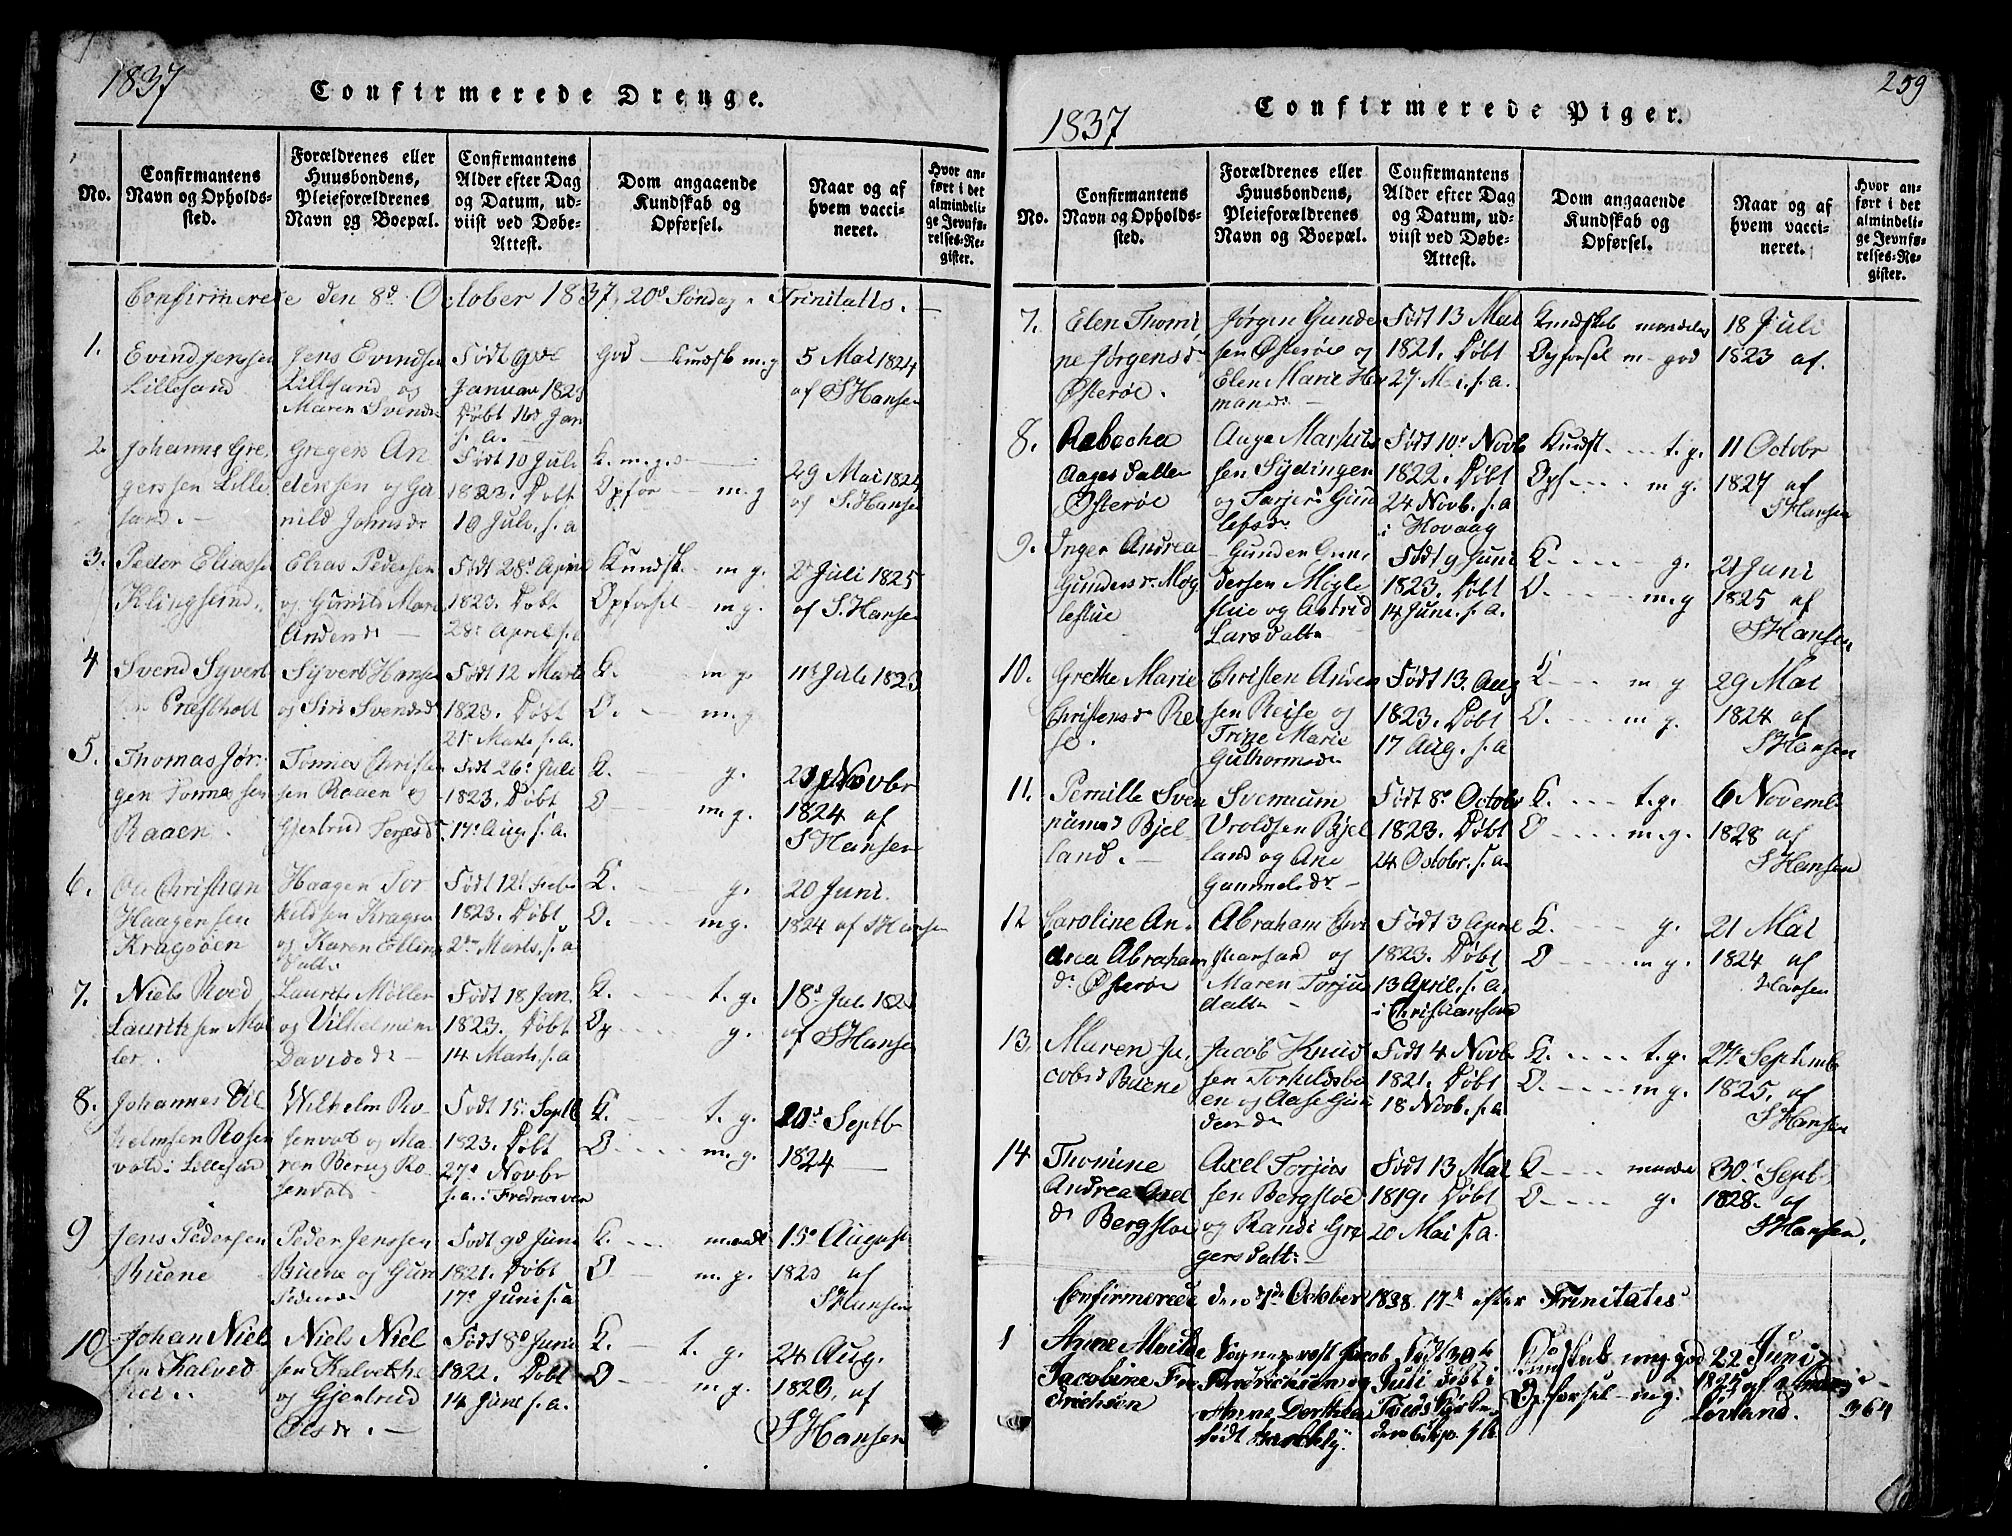 1837
Confirmerede Drenge.
No.
Confirmantens
Navn og Opholds-
sted.
Forældrenes eller
Huusbondens,
Pleieforældrenes
Navn og Boepæl.
Confirmantens
Alder efter Dag
og Datum, ud-
viist ved Døbe-
Attest.
Dom angaaende
Kundskab og
Opførsel.
Naar og af
hvem vacci-
neret.
Hvor an-
ført i det
almindeli-
ge Jevnfø-
relses-Re-
gister.
Confirmerede den 8d October 1837, 20d Søndag. Trinitatis.
1.
Evind Jenssen
Lillesand
Jens Evindsen
Lillesand og
Maren Svends
Født 9de
Januar 1823
Døbt 16d Jan
s. a.
God Kundsk m. g
5 Mai 1824
af S Hansen
2.
Johannes Gre
gerssen Lille
sand.
Gregers An
densen og Gu
nild Johnsdr
Født 10 Juli
1823. Døbt
19 Juli. s. a
K. m. g.
Opfør m. g
29 Mai 1824
af S. Hansen
3.
Peder Eliassen
Klingsund.
Elias Pedersen
og Gunild Mari
Andersdr
Født 28d April
1823. Døbt
28d April s. a
Kundsk. m g.
Opførsel m. g.
2d Juli 1825
af S. Hansen
4
Svend Syvert
Præstholt
Syvert Hansen
og Siri Svendsd
Født 12 Marts
1823. Døbt
21d Marts s. a.
K. m. g.
O. m. g
11d Juli 1823
5.
Thomas Jør
gen Tønnessen
Raaen.
Tønnes Christen
sen Raaen og
Gjertrud Terjesd
Født 26d Juli
1823. Døbt
17d Aug. s. a.
K. g.
O m. g.
Novbr
1824 af
S Hansen
6.
Ole Christian
Haagensen
Kragsøen
Haagen Tor
kildsen Kragsø
og Karen Ellens
datter
Født 12d Feb
1823. Døbt
2den Marts. s. a
K. g.
O. m g.
20 Juni
1824 af S Hansen
7.
Niels Roed
Lauritssen Møl
ler.
Laurits Møller
og Vilhelmine
Davidsdr
Født 18 Jan.
1823. Døbt
14 Marts. s. a
K. t. g.
Op g.
18d Juli 1823
af S Hansen
8.
Johannes Vil
helmsen Rosen
vold i Lillesand
Wilhelm Ro
senvold og Ma
ren Berug Ro
senvold
Født 15d Septb
1823. Døbt
27d Novbr
s. a. i Fredriksværn
K. t. g.
O m. g.
20d Septb
1824
9
Jens Pedersen
Buene
Peder Jenssen
Buene og Gun
Pedersdr
Født 9d Juni
1821. Døbt
17d Juni s. a
K. maadl
O m. g.
15d August
1823 af
S Hansen
10
Johan Niel
sen Kalved
hei.
Niels Niel
sen Kalvehei
og Gjertrud
Olsdr.
Født 8d Juni
1822. Døbt
14 Juni s. a.
K. t. g.
O m. g.
24 Aug.
1823, af
S Hansen
1837
Confirmerede Piger.
259
No.
Confirmantens
Navn og Opholds-
sted.
Forældrenes eller
Huusbondens,
Pleieforældrenes
Navn og Boepæl.
Confirmantens
Alder efter Dag
og Datum, ud-
viist ved Døbe-
Attest.
Dom angaaende
Kundskab og
Opførsel.
Naar og af
hvem vacci-
neret.
Hvor an-
ført i det
almindeli-
ge Jevnfø-
relses-Re-
gister.
7.
Elen Thomi
ne Jørgensdr
Østerøe.
Jørgen Gunde
sen Østerøe og
Elen Marie Her
mansdr
Født 13 Mai
1821. Døbt
27 Mai. s. a.
Kundskab maadelig
Opførsel m god
18 Juli
1823 af.
8.
Rebecha
Aagesdatter
Østerøe
Aage Markus
sen Sydingen
og Tarjer Gun
lefsdr
Født 10d Novb
1822. Døbt
24 Novb. s. a
i Hovaag
Kundsk. t. g.
Opf m g.
11 Octobr
1827 af
S Hansen
9.
Inger Andrea
Gundersdr Møg
lestue
Gunder Gun
dersen Møgle
stue og Astrid
Larsdatter
Født 9 Juni
1823. Døbt
14 Juni. s. a.
K. g.
O. m. g
21 Juni
1825 af
S Hansen,
10.
Grethe Marie
Christensdr Rei
se.
Christen Anders
sen Reise og
Trine Marie
Guthormsdr
Født 13. Aug
1823. Døbt
17 Aug. s. a
K m g
O. m. g.
29 Mai
1824 af
S Hansen
11.
Pernille Sven
numsd Bjel-
land.
Svennum
Vroldsen Bjel
land og Ane
Gammelsdr
Født 8d Octobr
1823. Døbt
24 Octobr. s. a
K. t. g.
O m. g.
6 Novemb
1828 af
S Hansen
12
Caroline An
drea Abraham
dr Østerøe
Abraham Chri
stiansand og
Maren Torju
datter
Født 3 April
1823. Døbt
13 April. s. a.
i Christiansand
K. g.
O m g.
21 Mai
1824 af
Hansen
13.
Maren Ja
cobsd Buene
Jacob Knud
sen Torkildsbu
en og Aase Gun
dersdr
Født 4 Novb
1821. Døbt
18 Novb. s. a
K. t. g.
O. m g.
27d Septemb
1825. af
S Hansen
14
Thomine
Andrea Axel
dr Bergstøe
Axel Torjus
sen Bergstøe
og Randi Gre
gersdatter
Født 13 Mai
1819. Døbt
20 Mai s. a.
K maade
O. g.
30d Sept
1828. af
S Hansen,
Confirmerede den 7de October 1838. 17d efter Trinitatis
1
Anne Alvilde
Jacobine Fre
drichsen
Sognepræst Jacob
Fredrichsen og
Anne Dorthea
født
Født 30d
Juli døbt i
Kirke
den 6 Sep. s. A.
Kundskab meg god
Opførsel m g.
22 Juni
1825 af
Løvland.
364